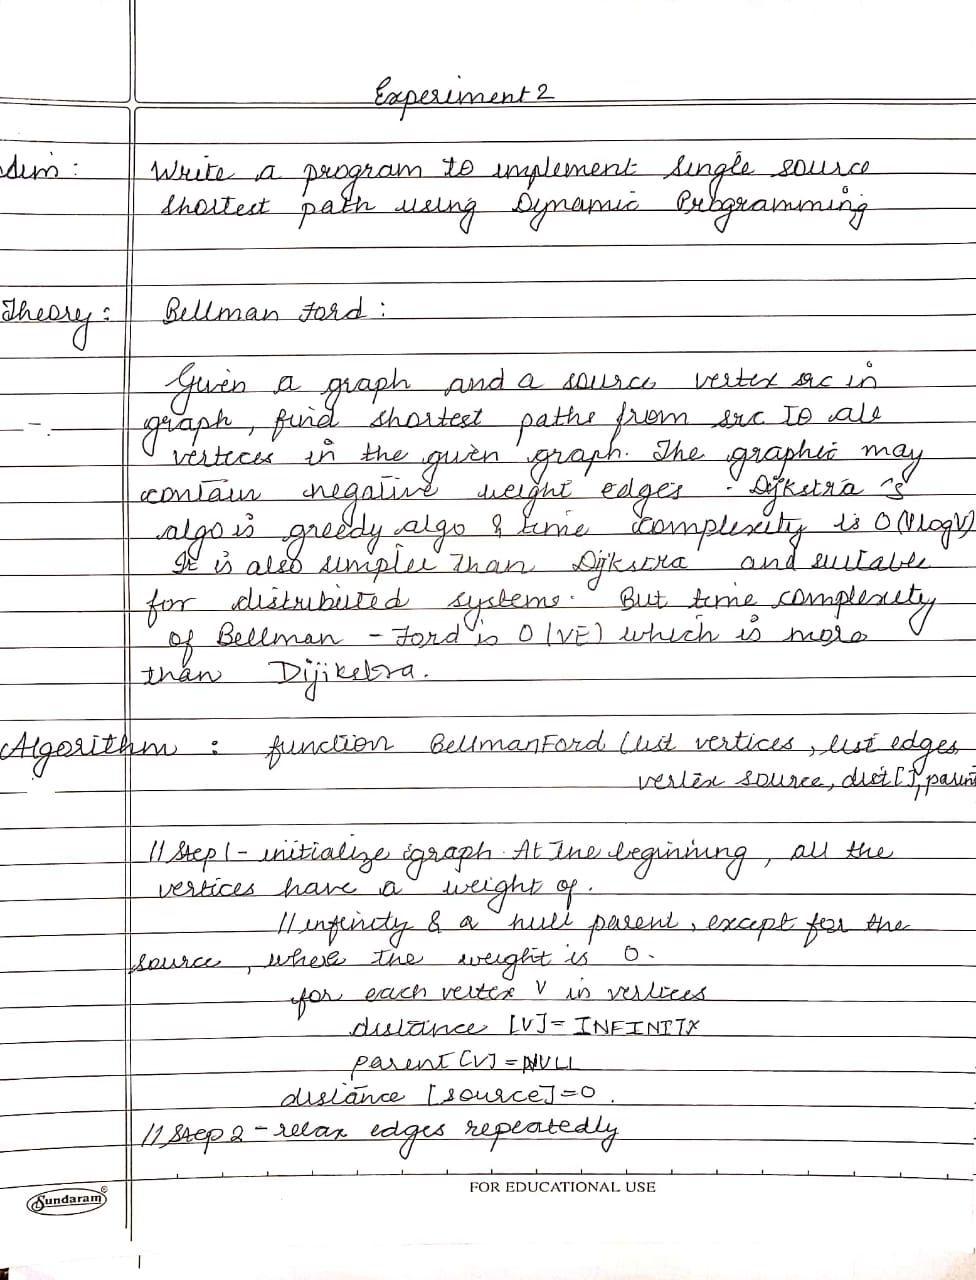 Experiment 2
Aim : Write a program to implement single source
shortest path using Dynamic Programming
Theory : Bellman Ford :
Given a graph and a source vertex src in
graph, find shortest paths from src to all
vertices in the given graph. The graphic may
contain negative weight edges . Dijkstra's
algo is greedy algo & time complexity is O(VlogV)
It is also simpler than Dijkstra and suitable
for distributed systems. But time complexity
of Bellman - Ford is O(VE) which is more
than Dijikstra.
Algorithm : function BellmanFord (list vertices, list edges
vertex source, dist[], parent
// Step 1 - initialize graph. At the beginning, all the
vertices have a weight of.
// infinity & a null parent, except for the
source, where the weight is 0.
for each vertex V in vertices
distance [V] = INFINITY
parent [V] = NULL
distance [source] = 0.
// Step 2 - relax edges repeatedly
FOR EDUCATIONAL USE
Sundaram®